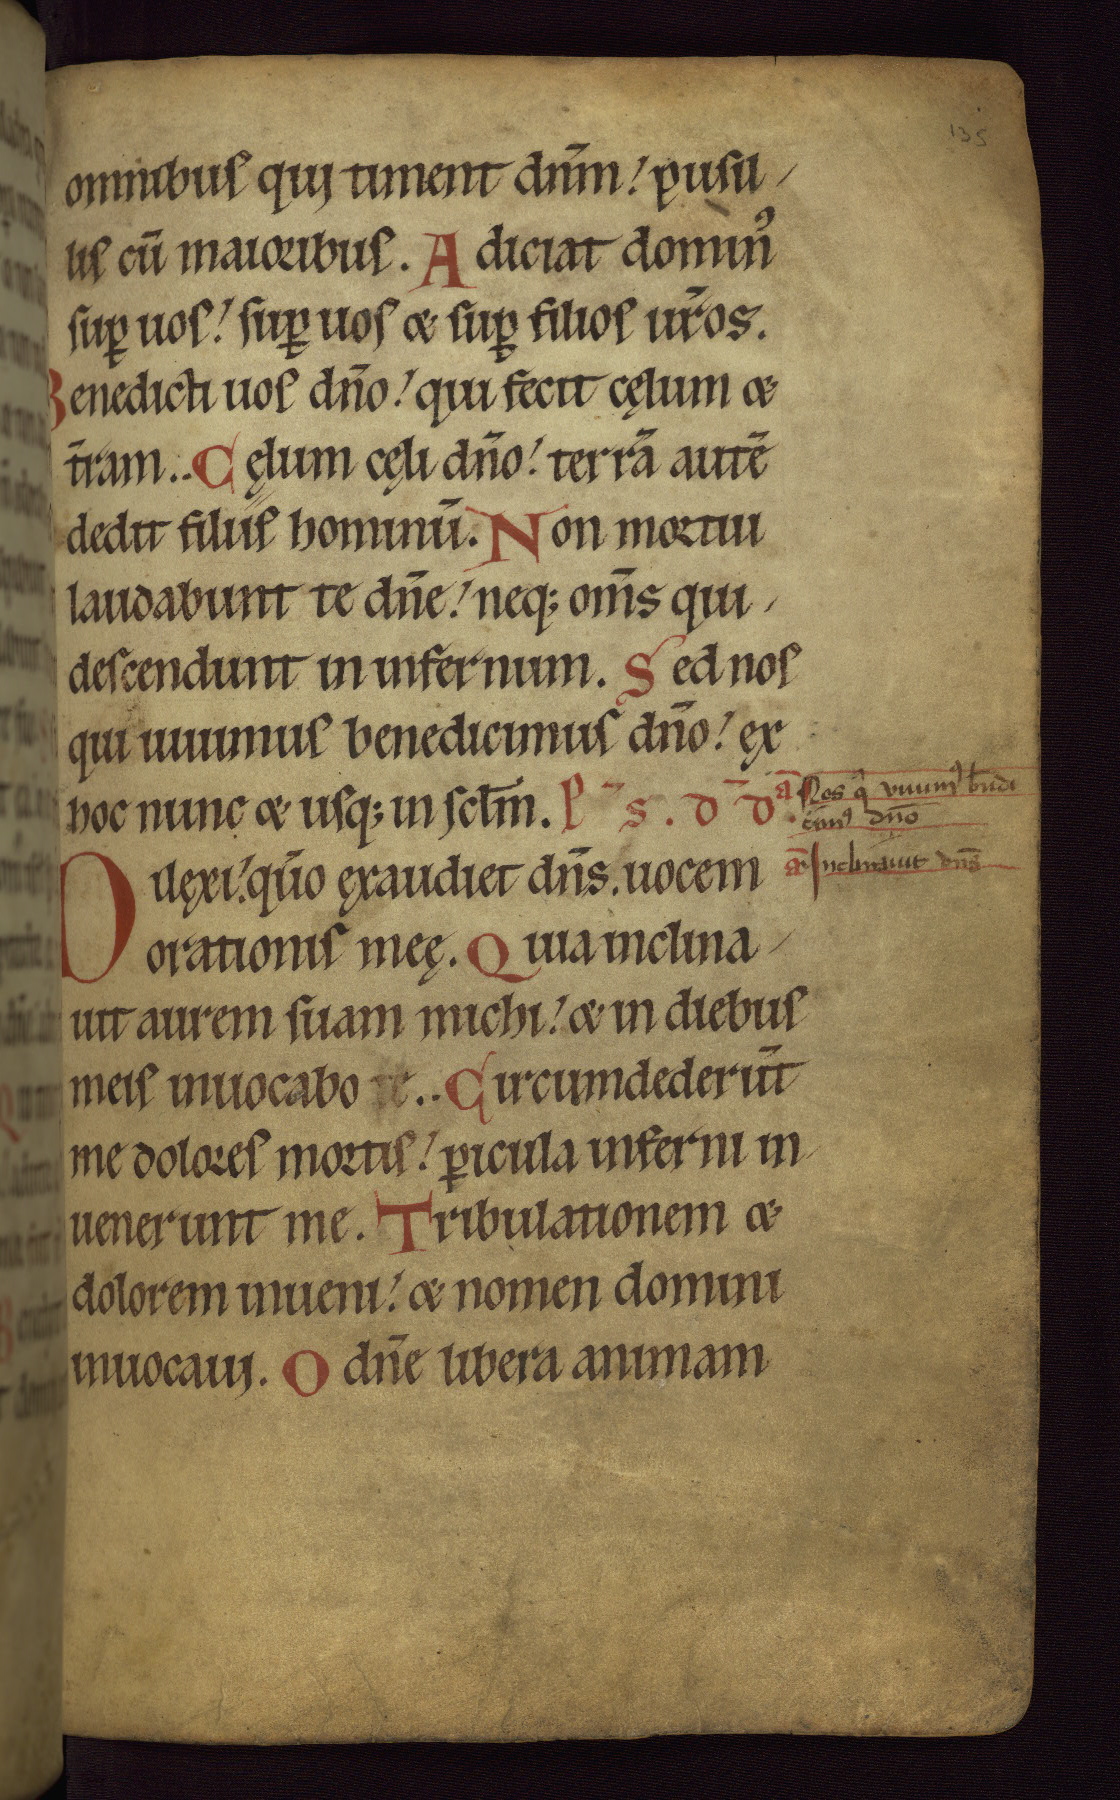 135
omnibus quj timent dn̄m! pusil
lis cū maioribus. Adiciat domin᾽
suꝑ uos! suꝑ uos & suꝑ filios ur̄os.
Benedicti uos dn̄o! qui fecit cęlum &
t̄ram.. Cęlum cęli dn̄o! terrā autē
dedit filiis hominū. Non mortui
laudabunt te dn̄e! neq; om̄s qui
descendunt in infernum. Sed nos
qui uiuimus benedicimus dn̄o! ex
hoc nunc & usq; in sclm̄. P̄s. D̄D
ā Nos q̇ viuim᾽ bn̄di
cim᾽ dn̄o
Dilęxi! qūo ęxaudiet dn̄s. uocem
ā Inclinauit dn̄s
orationis meę. Quia inclina
uit aurem suam michi! & in diebus
meis inuocabo te.. Circumdederūt
me dolores mortis! ꝑicula inferni in
uenerunt me. Tribulationem &
dolorem inueni! & nomen domini
inuocauj. O dn̄e libera animam